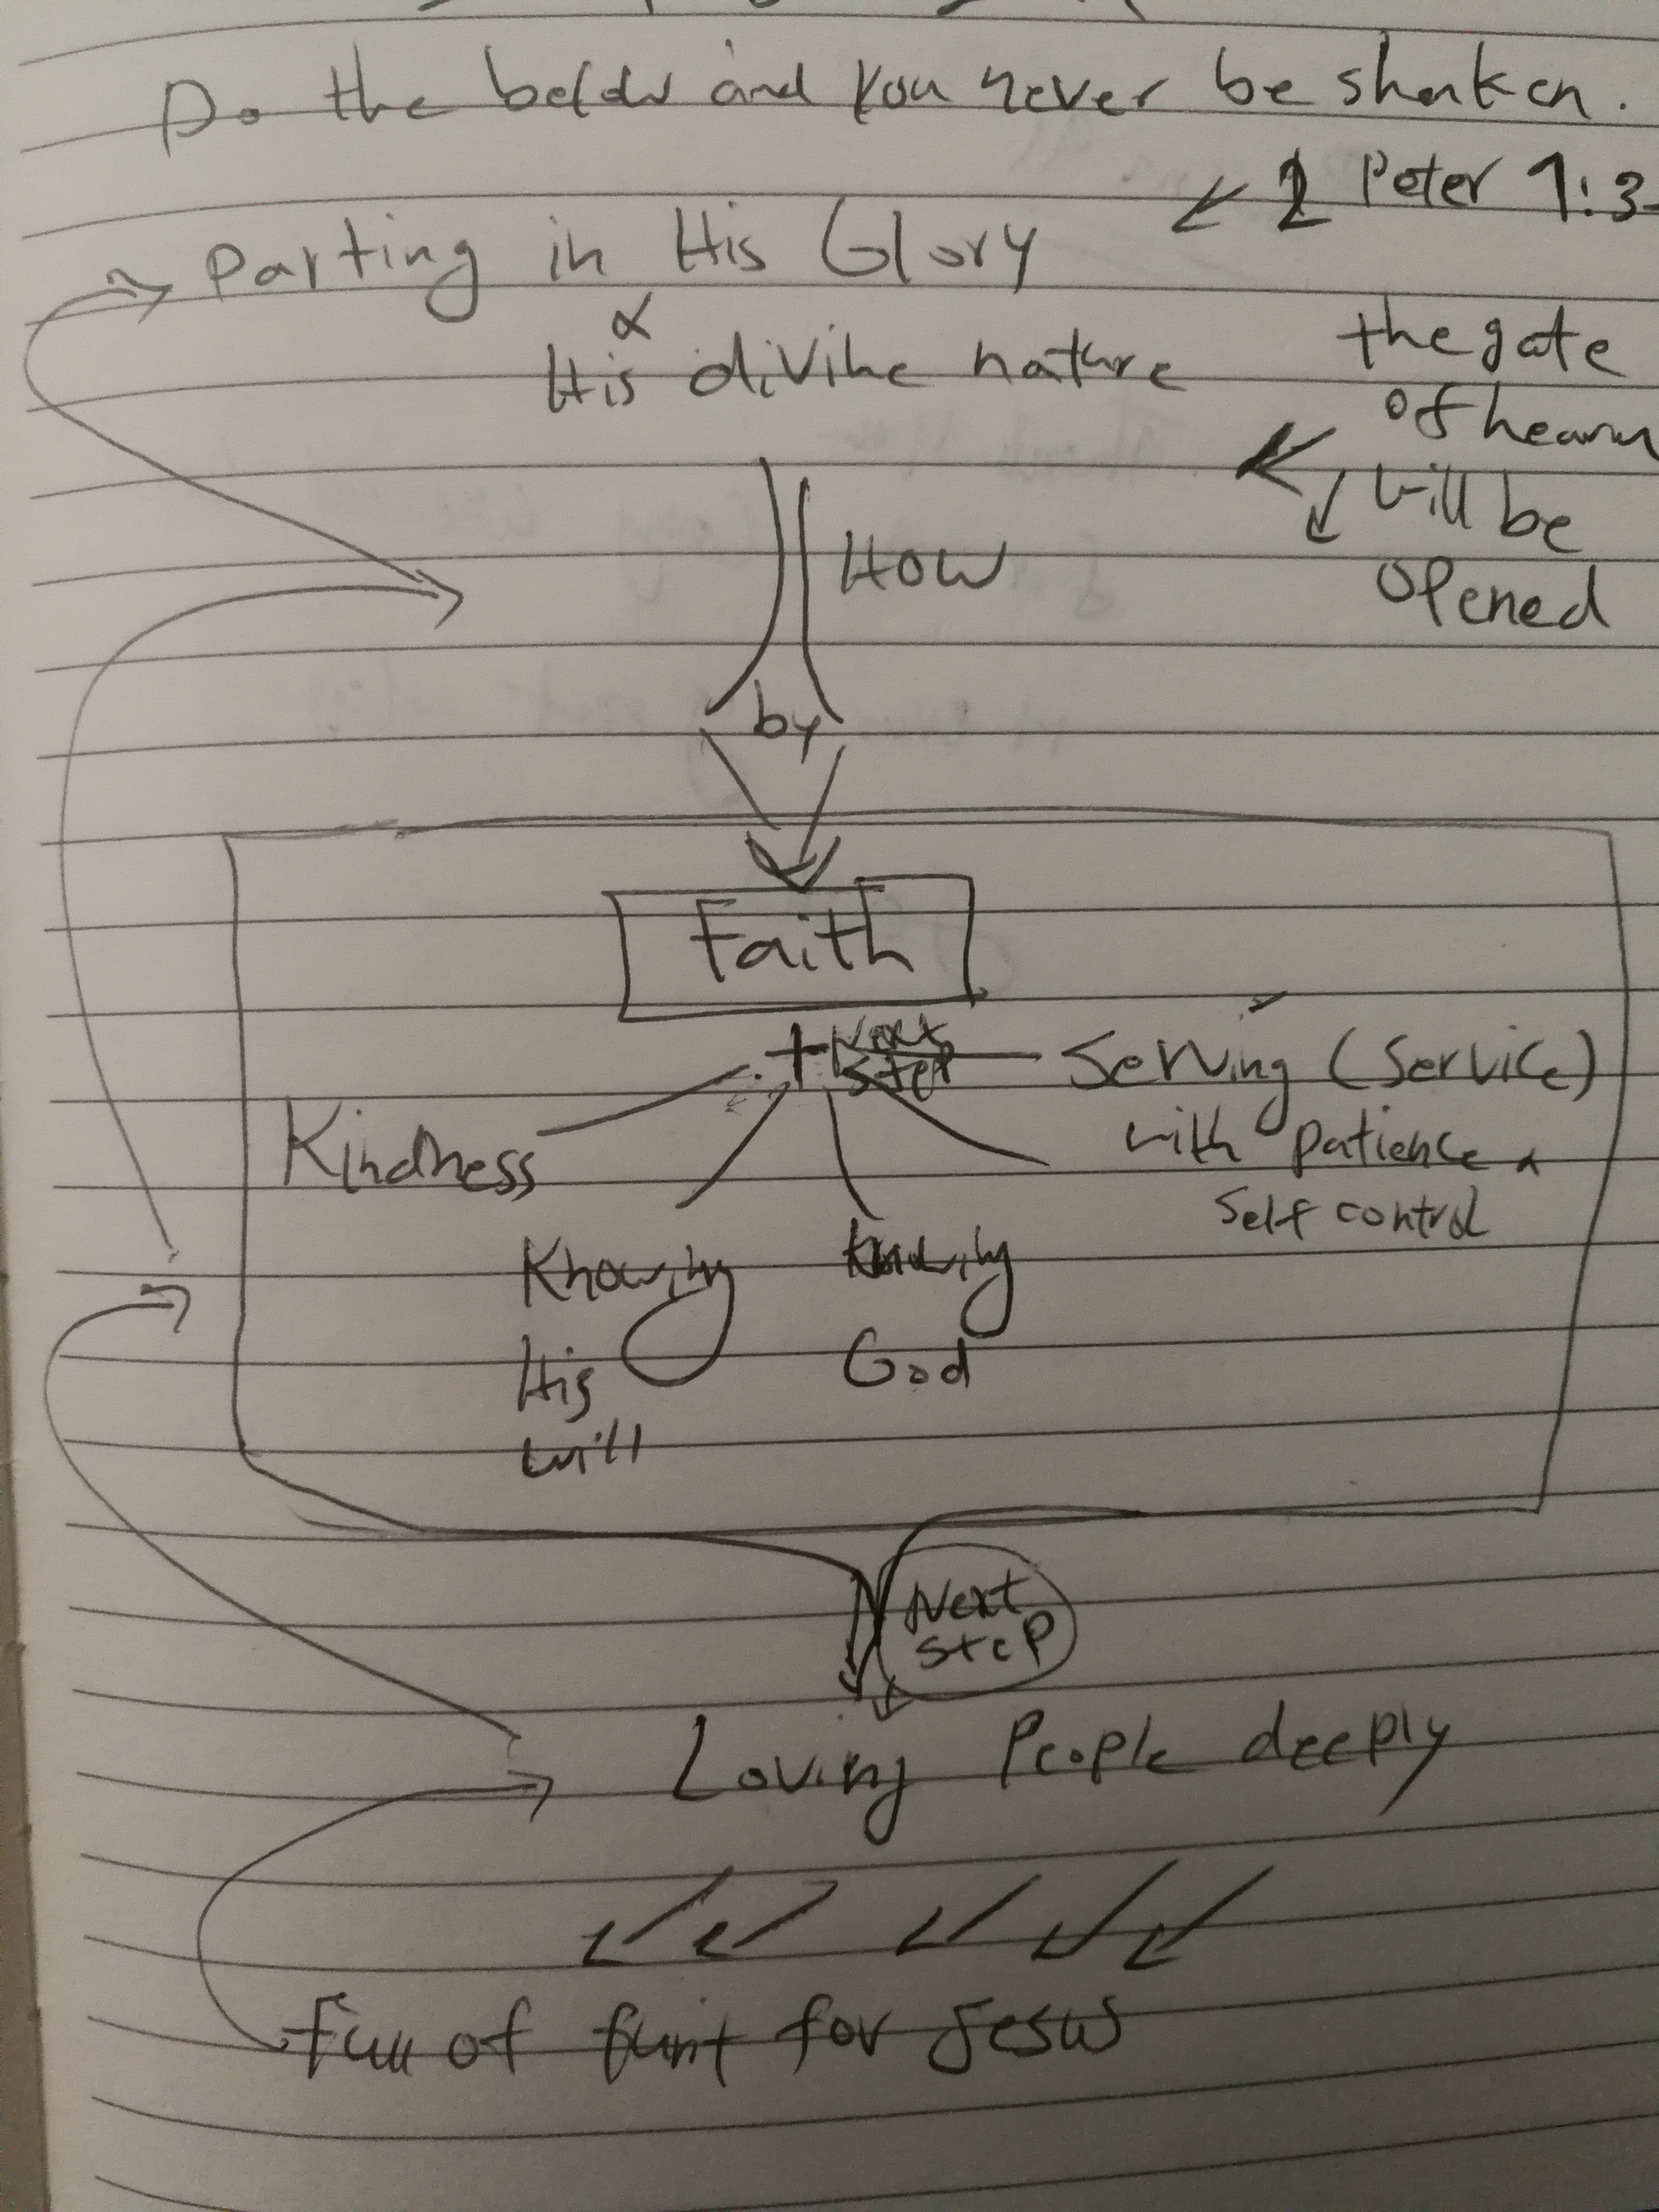 Do the below and you never be shaken.
2 Peter 1:3-
Parting in His Glory
&
His divine nature
the gate
of heaven
will be
opened
HOW
by
Faith
+ Next
step
Serving (Service)
with patience &
Self control
Kindness
Knowing
His
will
Knowing
God
Next
step
Loving People deeply
Full of fruit for Jesus